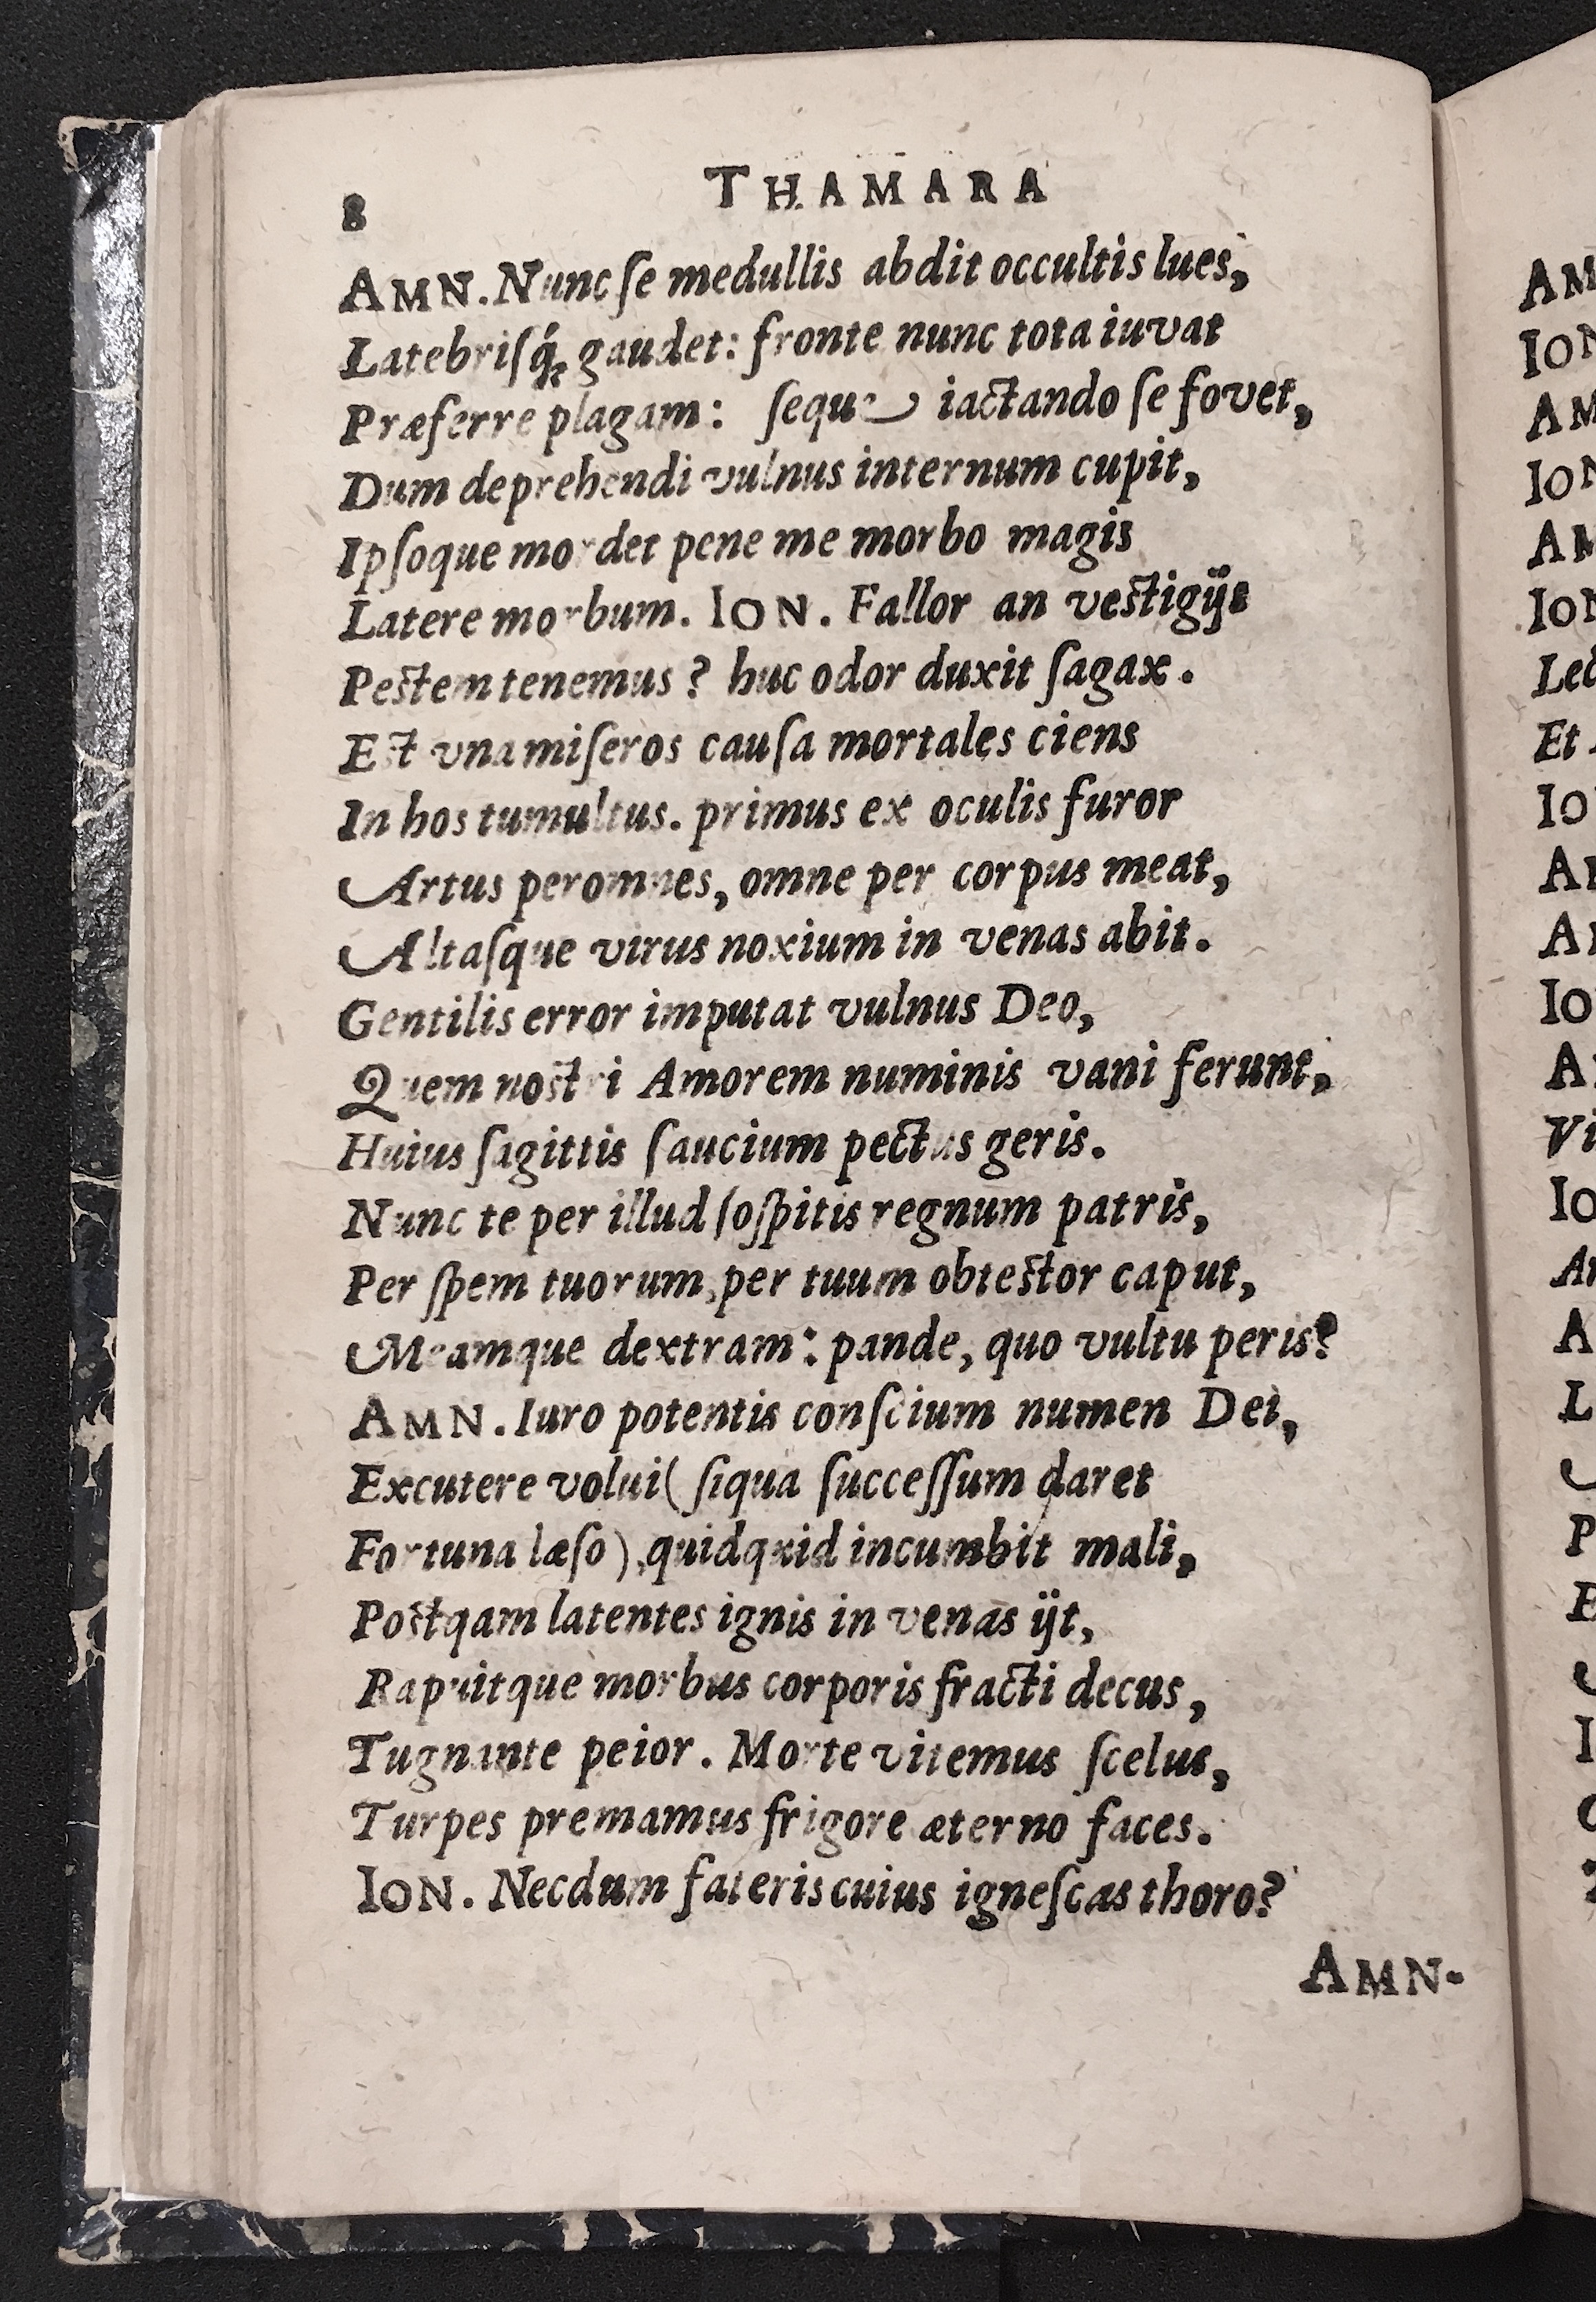 8 THAMARA
AMN. Nunc ſe medullis abdit occultis lues,
Latebriſq́; gaudet: fronte nunc tota iuvat
Præferre plagam: ſeque iactando ſe fovet,
Dum deprehendi vulnus internum cupit,
Ipſoque mordet pene me morbo magis
Latere morbum. ION. Fallor an veſtigijs
Peſtem tenemus? huc odor duxit ſagax.
Eſt vna miſeros cauſa mortales ciens
In hos tumultus. primus ex oculis furor
Artus per omnes, omne per corpus meat,
Altaſque virus noxium in venas abit.
Gentilis error imputat vulnus Deo,
Quem noſtri Amorem numinis vani ferunt,
Huius ſagittis ſaucium pectus geris.
Nunc te per illud ſoſpitis regnum patris,
Per ſpem tuorum, per tuum obteſtor caput,
Meamque dextram: pande, quo vultu peris?
AMN. Iuro potentis conſcium numen Dei,
Excutere volui (ſiqua ſucceſſum daret
Fortuna læſo), quidquid incumbit mali,
Poſtqam latentes ignis in venas ijt,
Rapuitque morbus corporis fracti decus,
Tugnante peior. Morte vitemus ſcelus,
Turpes premamus frigore æterno faces.
ION. Necdum fateris cuius igneſcas thoro?
AMN-